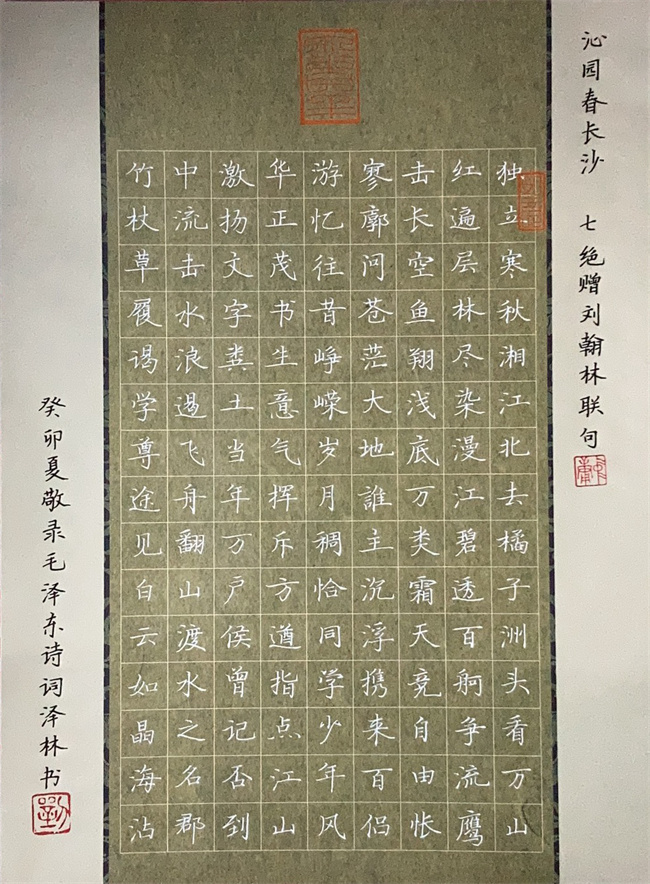 沁园春长沙 七绝赠刘翰林联句
独立寒秋湘江北去橘子洲头看万山
红遍层林尽染漫江碧透百舸争流鹰
击长空鱼翔浅底万类霜天竞自由怅
寥廓问苍茫大地誰主沉浮携来百侣
游忆往昔峥嵘岁月稠恰同学少年风
华正茂书生意气挥斥方遒指点江山
激扬文字粪土当年万户侯曾记否到
中流击水浪遏飞舟翻山渡水之名郡
竹杖草履谒学尊途见白云如晶海沾
癸卯夏敬录毛泽东诗词泽林书